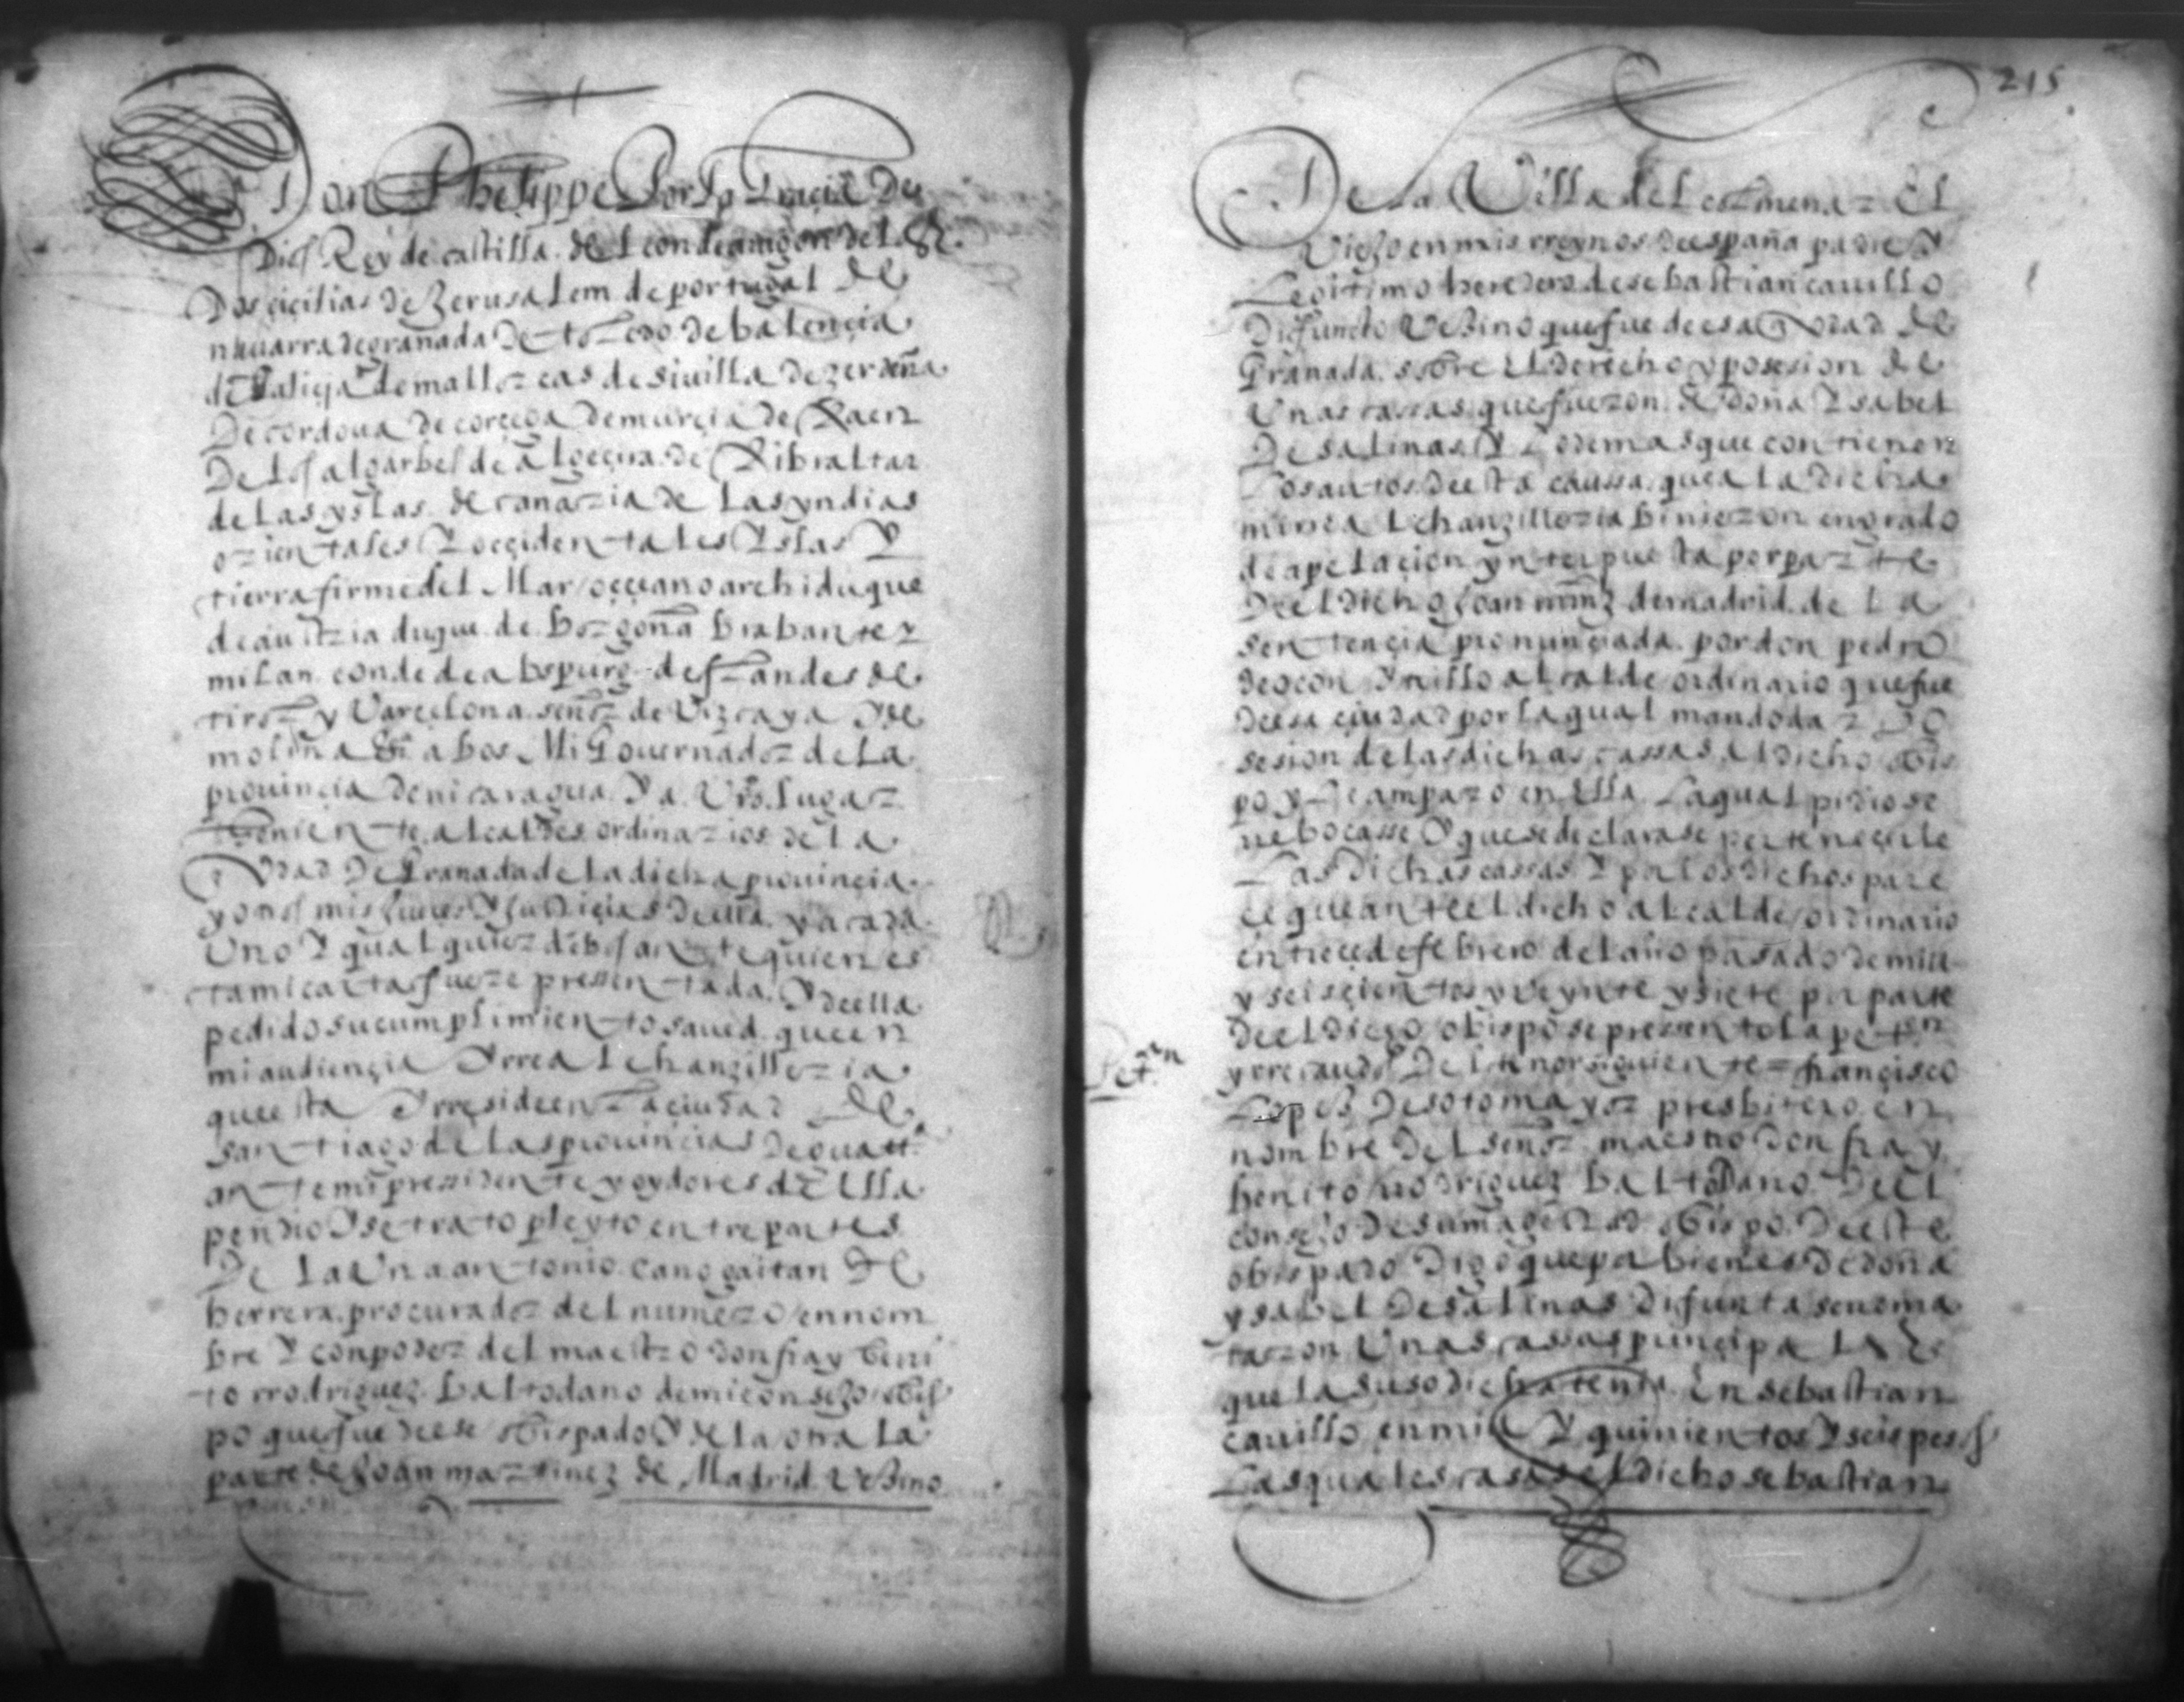 Don Phelippe Por la Gracia de
Dios Rey de castilla de leon de aragon de las
Dos cicilias de Jerusalem de portugal de
nauarra de granada de toledo de balencia
de Galicia de mallorcas de siuilla de zerdeña
De cordoua de corcega de murcia de Xaen
De los algarbes de algecira de Xibraltar
de las yslas de canaria de las yndias
orientales Y occidentales Yslas Y
tierra firme del Mar occeano archiduque
de austria duque de borgoña brabante y
milan conde de abspurg de flandes de
tirol y Varcelona señor de Vizcaya y de
molina a bos Mi Gouernador de la
prouincia de nicaragua Y a Vro lugar
theniente alcaldes ordinarios de la
ciudad De Granada de la dicha prouincia
y otros mis jueces Y justicias de ella y a cada
Uno Y qualquier de bos ante quien es
ta mi carta fuere pressentada Y de ella
pedido su cumplimiento saued que en
mi audiencia Y rreal chanzilleria
que esta Y rreside en la ciudad de
santiago de las prouincias de guatta
ante mi pressidente y oydores de ella
pendio Y se trato pleyto entre partes
De la Una antonio cano gaitan de
herrera procurador del numero en nom
bre Y con poder del maestro don fray beni
to rrodriguez baltodano de mi consejo obis
po que fue de ese obispado Y de la otra la
parte de Joan martinez de Madrid Vezino
215
De la Villa del colmenar El
Viejo en mis rreynos de españa padre Y
Legitimo heredero de sebastian cauillo
Difuncto Vezino que fue de esa ciudad de
Granada sobre el derecho y posesion de
Unas cassas que fueron de doña Ysabel
De salinas Y lo demas que contienen
Los autos de esta caussa que a la dicha
mi rreal chanzilleria binieron en grado
de apelacion ynterpuesta por parte
De el dicho Joan mrnz de madrid de la
sentencia pronunciada por don pedro
de ocon Y trillo alcalde ordinario que fue
de esa ciudad por la qual mando dar po
sesion de las dichas cassas al dicho obis
po y le amparo en Ella La qual pidio se
rrebocasse Y que se declarase pertenecerle
Las Dichas cassas Y por los dichos pare
ce que ante el dicho alcalde ordinario
en trece de febrero del año pasado de mill
y seiscientos y Veynte y siete por parte
De el Dicho obispo se pressento la peton
y rrecaudos De l tenor siguiente = francisco
Petn
Lopez De sotomayor presbitero en
nombre Del señor maestro don fray
benito rrodriguez baltodano De el
consejo De su magestad obispo De este
obispado Digo que por bienes De doña
ysabel De salinas difunta se rrema
taron Unas cassas principales
que la susodicha tenia En sebastian
cauillo en mil Y quinientos Y seis pesos
Las quales casas el dicho sebastian